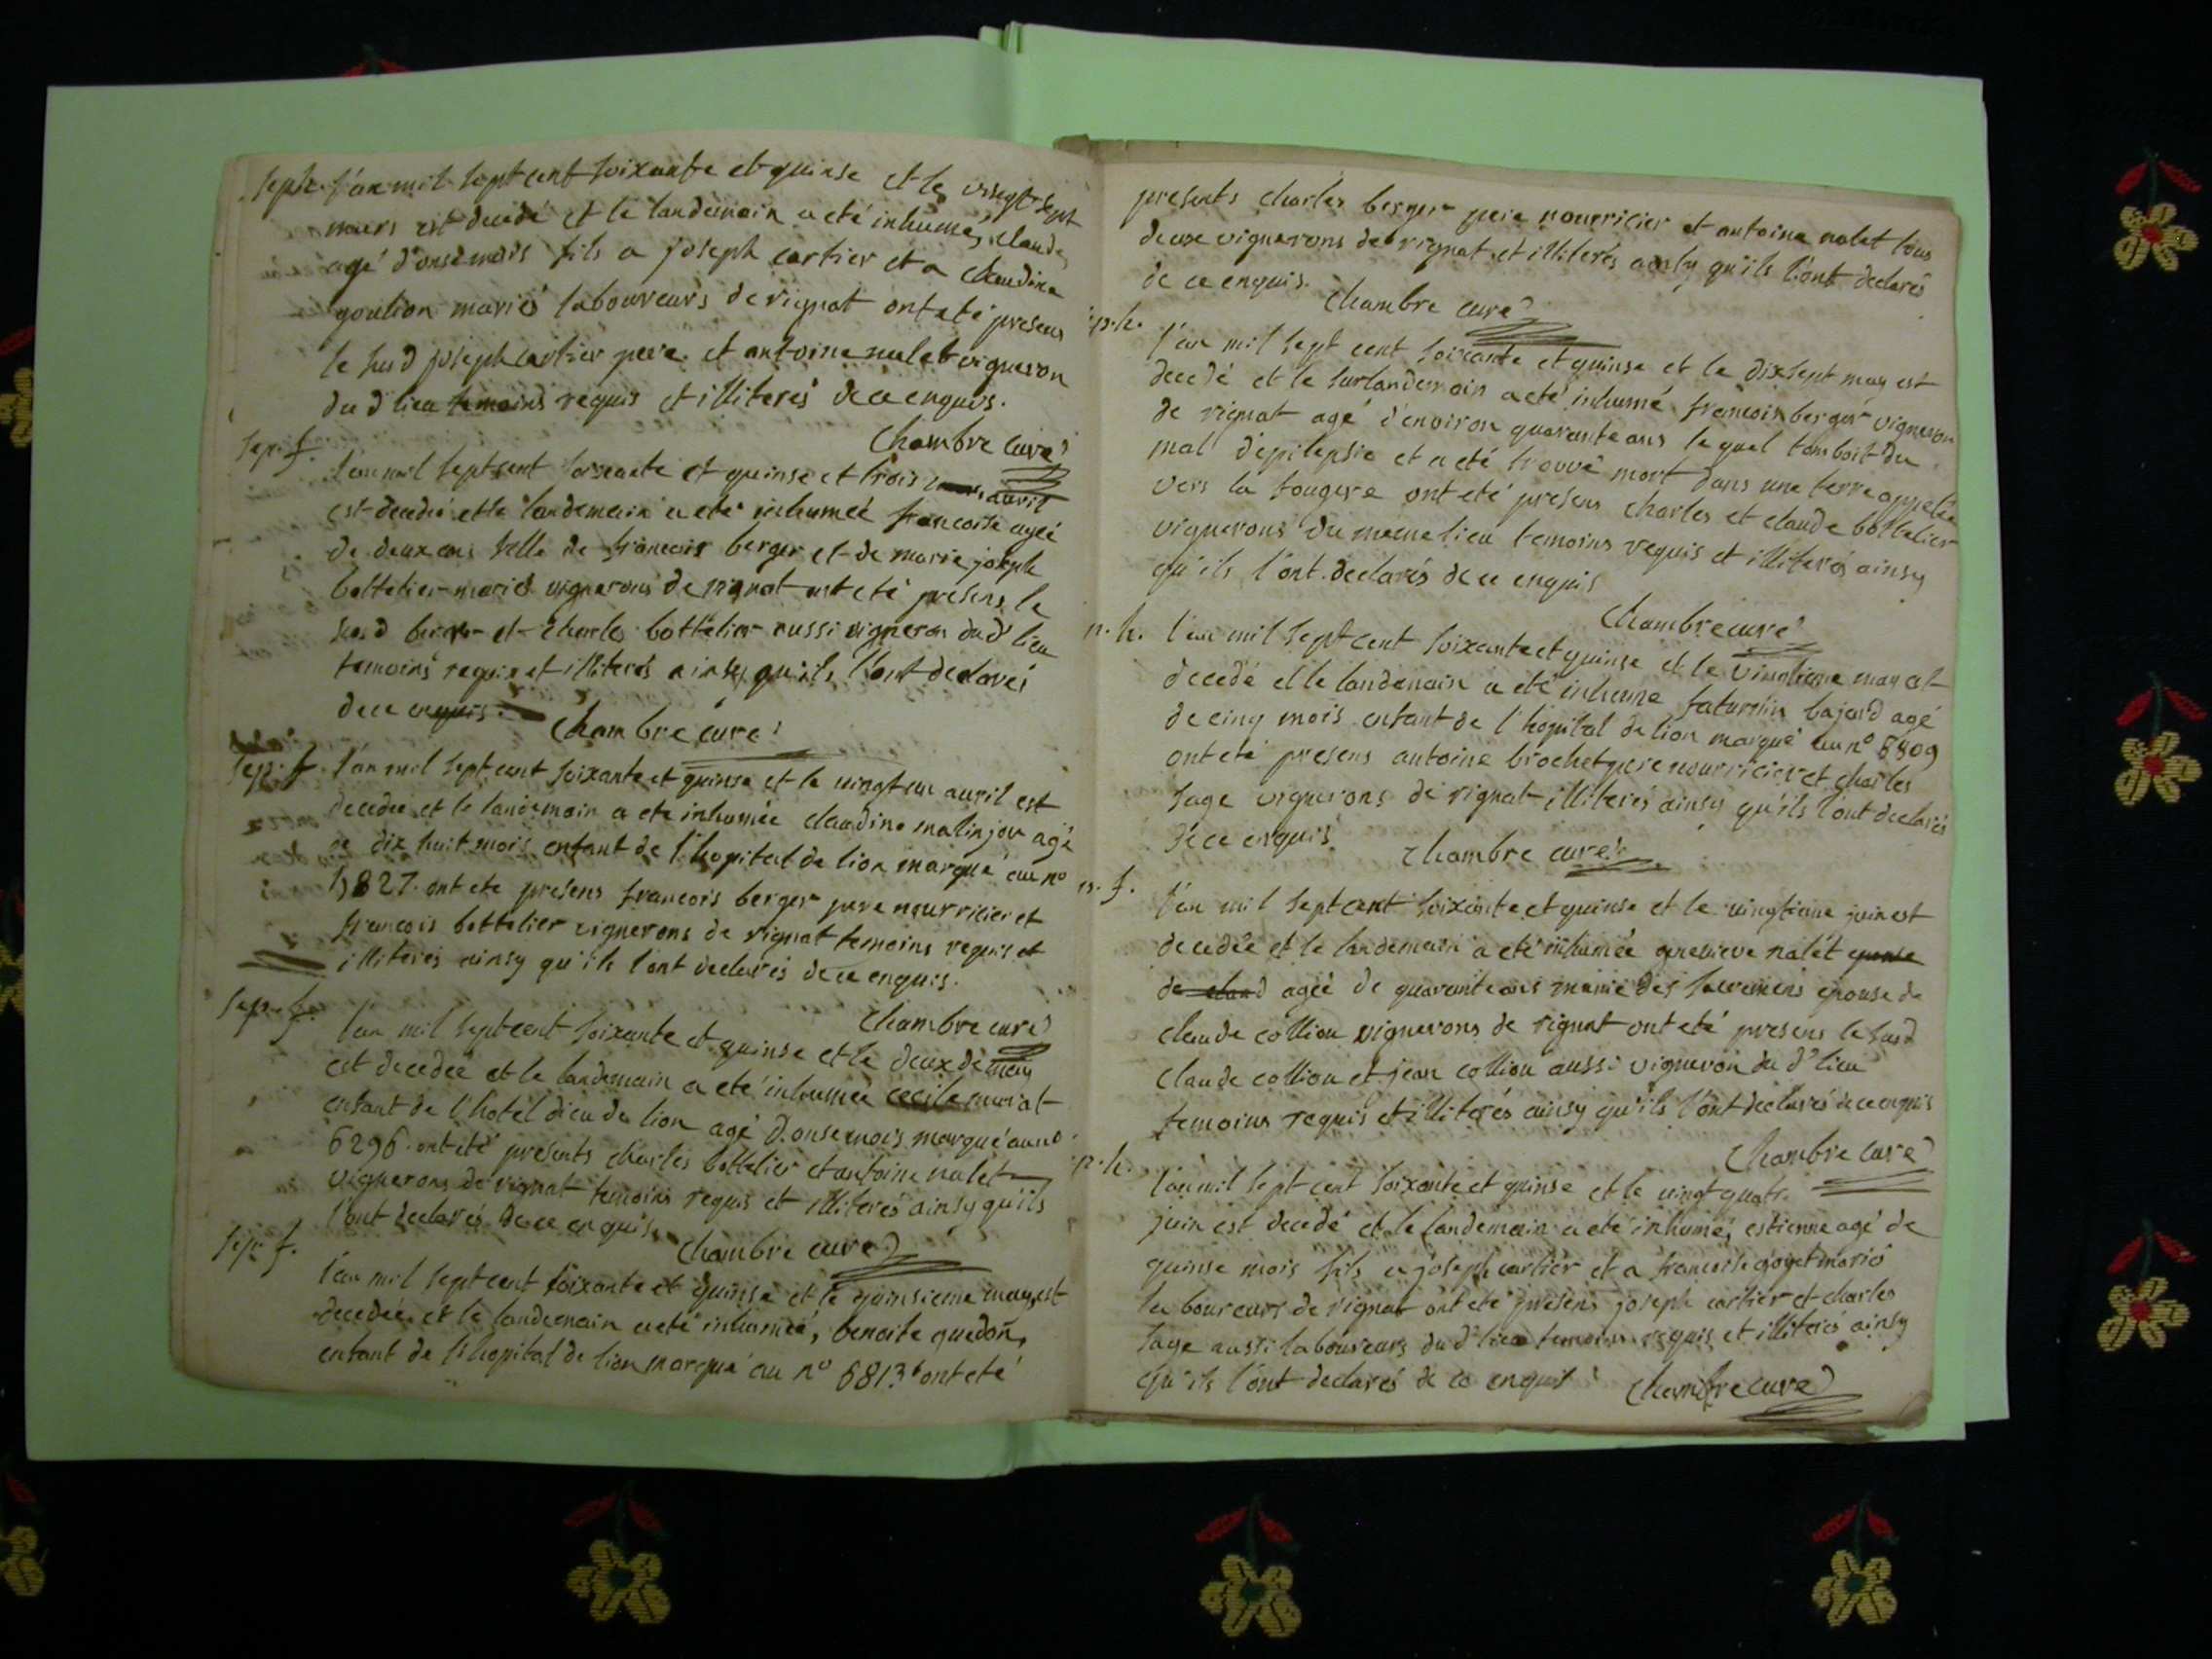 sep.h. l'an mil sept cent soixante et quinse et le vingt sept
mars est decedé et le landemain a eté inhumé, claude
agé d'onse mois fils a joseph cartier et a claudine
goulion mariés laboureurs de rignat ont eté presens
le susd joseph cartier pere et antoine nalet vigneron
du d lieu temoins requis et illiterés de ce enquis.
Chambre curé
sep. f. l'an mil sept cent soixante et quinse et trois avril
est decedé et le landemain a eté inhumée francoise agée
de deux ans fille de francois berger et de marie joseph
bottelier mariés vignerons de rignat ont eté presens le
susd berger et charles bottelier aussi vigneron dud lieu
temoins requis et illiterés ainsy qu'ils l'ont declarés
de ce enquis. Chambre curé
sep. f. l'an mil sept cent soixante et quinse et le vingt un avril est
decedée et le landemain a ete inhumée claudine malinjou agé
de dix huit mois enfant de l'hopital de lion marqué au n°
5827. ont ete presens francois berger pere nourricier et
francois bottelier vignerons de rignat temoins requis et
illiterés ainsy qu'ils l'ont declarés de ce enquis.
Chambre curé
sep. f. l'an mil sept cent soixante et quinse et le deux de may
est decedée et le landemain a eté inhumée cecile murat
enfant de l'hotel dieu de lion agé d'onse mois marqué au n°
6296. ont eté presents charles bottelier et antoine nalet
vignerons de rignat temoins requis et illiterés ainsy qu'ils
l'ont declarés de ce enquis. Chambre curé
sep. f. l'an mil sept cent soixante et quinse et le quinsieme may est
decedée et le landemain a eté inhumée, benoite guedon,
enfant de l'hopital de lion marqué au n° 6813 ont eté
presents charles berger pere nourricier et antoine nalet tous
deux vignerons de rignat et illiterés ainsy qu'ils l'ont declarés
de ce enquis. Chambre curé
s.p.h. l'an mil sept cent soixante et quinse et le dixsept may est
decedé et le surlandemain a eté inhumé francois berger vigneron
de rignat agé d'environ quarante ans lequel tomboit du
mal d'epilepsie et a eté trouvé mort dans une terre appelée
vers la fougere ont eté presens charles et claude bottelier
vignerons du meme lieu temoins requis et illiterés ainsy
qu'ils l'ont declarés de ce enquis
Chambre curé
p. h. l'an mil sept cent soixante et quinse et le vintieme may est
decedé et le landemain a eté inhumé saturnin bajard agé
de cinq mois enfant de l'hopital de lion marqué au n° 6809
ont eté presens antoine brochet pere nourricier et charles
sage vignerons de rignat illiterés ainsy qu'ils l'ont declarés
de ce enquis. Chambre curé
p. f. l'an mil sept cent soixante et quinse et le vingtieme juin est
decedée et le landemain a eté inhumée genevieve nalet
agée de quarante ans munie des sacremens epouse de
claude collion vignerons de rignat ont eté presens le susd
claude collion et jean collion aussi vigneron du d° lieu
temoins requis et illiterés ainsy qu'ils l'ont declarés de ce enquis
Chambre curé
p. h. l'an mil sept cent soixante et quinse et le vingt quatre
juin est decedé et le landemain a eté inhumé, estienne agé de
quinse mois fils a joseph cartier et a francoise goyet mariés
laboureurs de rignat ont eté presens joseph cartier et charles
sage aussi laboureurs du d° lieu temoins requis et illiterés ainsy
qu'ils l'ont declarés de ce enquis Chambre curé